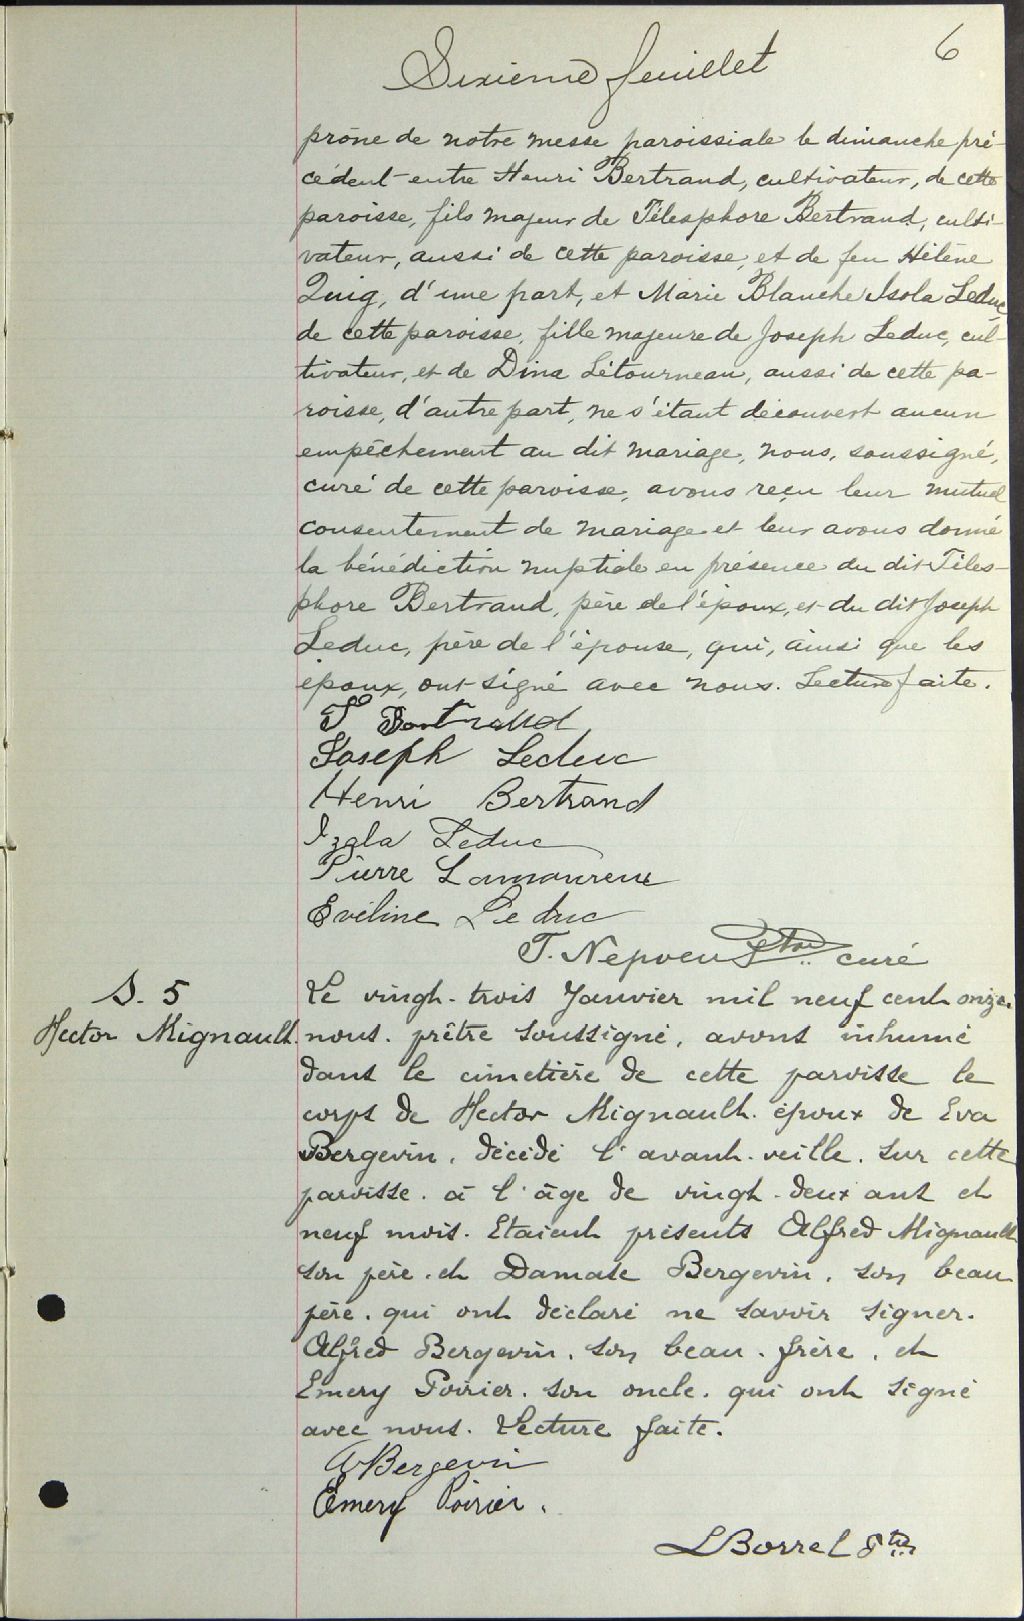 6
Sixième feuillet
prône de notre messe paroissiale le dimanche pré-
cédent entre Henri Bertrand, cultivateur, de cette
paroisse, fils majeur de Télesphore Bertrand, culti-
vateur, aussi de cette paroisse, et de feu Hélène
Quig, d'une part, et Marie Blanche Isola Leduc,
de cette paroisse, fille majeure de Joseph Leduc, cul-
tivateur, et de Dina Létourneau, aussi de cette pa-
roisse, d'autre part, ne s'étant découvert aucun
empêchement au dit mariage, nous, soussigné,
curé de cette paroisse, avons reçu leur mutuel
consentement de mariage et leur avons donné
la bénédiction nuptiale en présence du dit Téles-
phore Bertrand, père de l'époux, et du dit Joseph
Leduc, père de l'épouse, qui, ainsi que les
époux, ont signé avec nous. Lecture faite.
T Bertrand
Joseph Leduc
Henri Bertrand
Izola Leduc
Pierre Lamoureux
Eveline Leduc
T. Nepveu Ptre curé
S. 5
Hector Mignault.
Le vingt-trois Janvier mil neuf cent onze.
nous. prêtre soussigné, avons inhumé
dans le cimetière de cette paroisse le
corps de Hector Mignault. époux de Eva
Bergevin. décédé l'avant-veille. sur cette
paroisse. à l'âge de vingt-deux ans et
neuf mois. Etaient présents Alfred Mignault
son père. et Damase Bergevin. son beau
père. qui ont déclaré ne savoir signer.
Alfred Bergevin. son beau-frère. et
Emery Poirier. son oncle. qui ont signé
avec nous. Lecture faite.
A Bergevin
Emery Poirier.
L Borrel Ptre